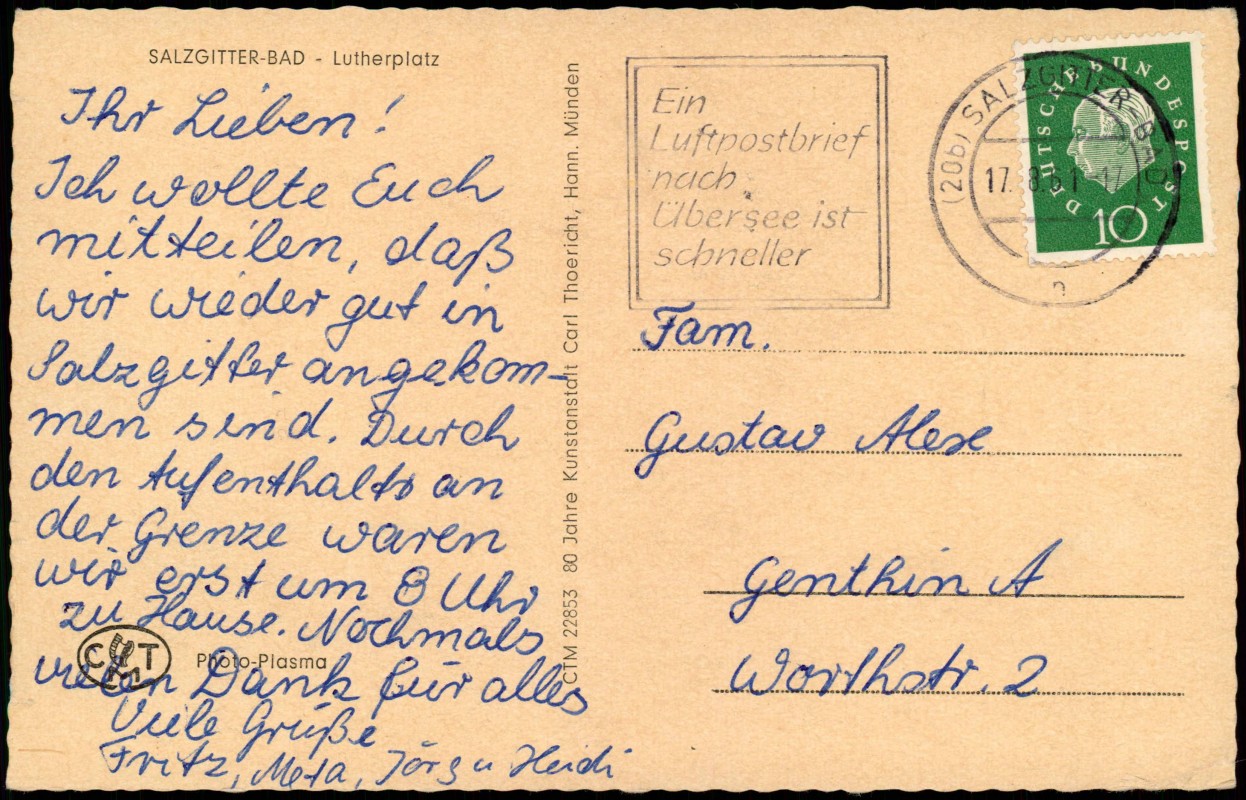 SALZGITTER-BAD - Lutherplatz
Ihr Lieben!
Ich wollte Euch
mitteilen, daß
wir wieder gut in
Salzgitter angekom-
men sind. Durch
den Aufenthalts an
der Grenze waren
wir erst um 8 Uhr
zu Hause. Nochmals
vielen Dank für alles
Viele Grüße
Fritz, Meta, Jörg u Heidi
C T M
Photo-Plasma
CTM 22853 80 Jahre Kunstanstalt Carl Thoericht, Hann. Münden
Ein
Luftpostbrief
nach
Übersee ist
schneller
(20b) SALZGITTER-BAD
17. 8.61-17
n
DEUTSCHE BUNDESPOST
10
Fam.
Gustav Alexe
Genthin A
Worthstr. 2